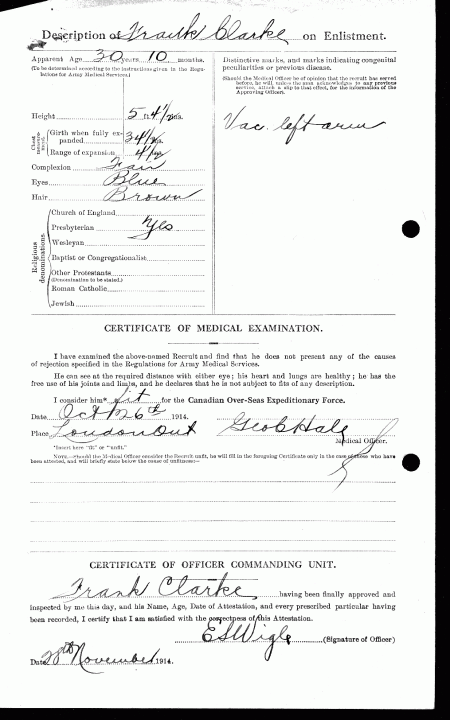 Description of Frank Clarke on Enlistment.
Apparent Age 30 years 10 months.
(To be determined according to the instructions given in the Regulations for Army Medical Services.)
Distinctive marks, and marks indicating congenital
peculiarities or previous disease.
(Should the Medical Officer be of opinion that the recruit has served
before, he will, unless the man acknowledges to any previous
service, attach a slip to that effect, for the information of the
Approving Officer).
Height 5 ft. 4 1/2 ins.
Vac. left arm
Chest measurement
Girth when fully expanded 34 1/2 ins.
Range of expansion 4 1/2 ins.
Complexion Fair
Eyes Blue
Hair Brown
Religious denominations.
Church of England
Presbyterian Yes
Wesleyan
Baptist or Congregationalist
Other Protestants
(Denomination to be stated.)
Roman Catholic
Jewish
CERTIFICATE OF MEDICAL EXAMINATION.
I have examined the above-named Recruit and find that he does not present any of the causes
of rejection specified in the Regulations for Army Medical Services.
He can see at the required distance with either eye; his heart and lungs are healthy; he has the
free use of his joints and limbs, and he declares that he is not subject to fits of any description.
I consider him* fit for the Canadian Over-Seas Expeditionary Force.
Date Oct 26th 1914.
Place London Ont
Geo C Hale
Medical Officer.
*Insert here "fit" or "unfit."
NOTE.—Should the Medical Officer consider the Recruit unfit, he will fill in the foregoing Certificate only in the case of those who have
been attested, and will briefly state below the cause of unfitness:—
CERTIFICATE OF OFFICER COMMANDING UNIT.
Frank Clarke having been finally approved and
inspected by me this day, and his Name, Age, Date of Attestation, and every prescribed particular having
been recorded, I certify that I am satisfied with the correctness of this Attestation.
E S Wigle (Signature of Officer)
Date 28th November 1914.